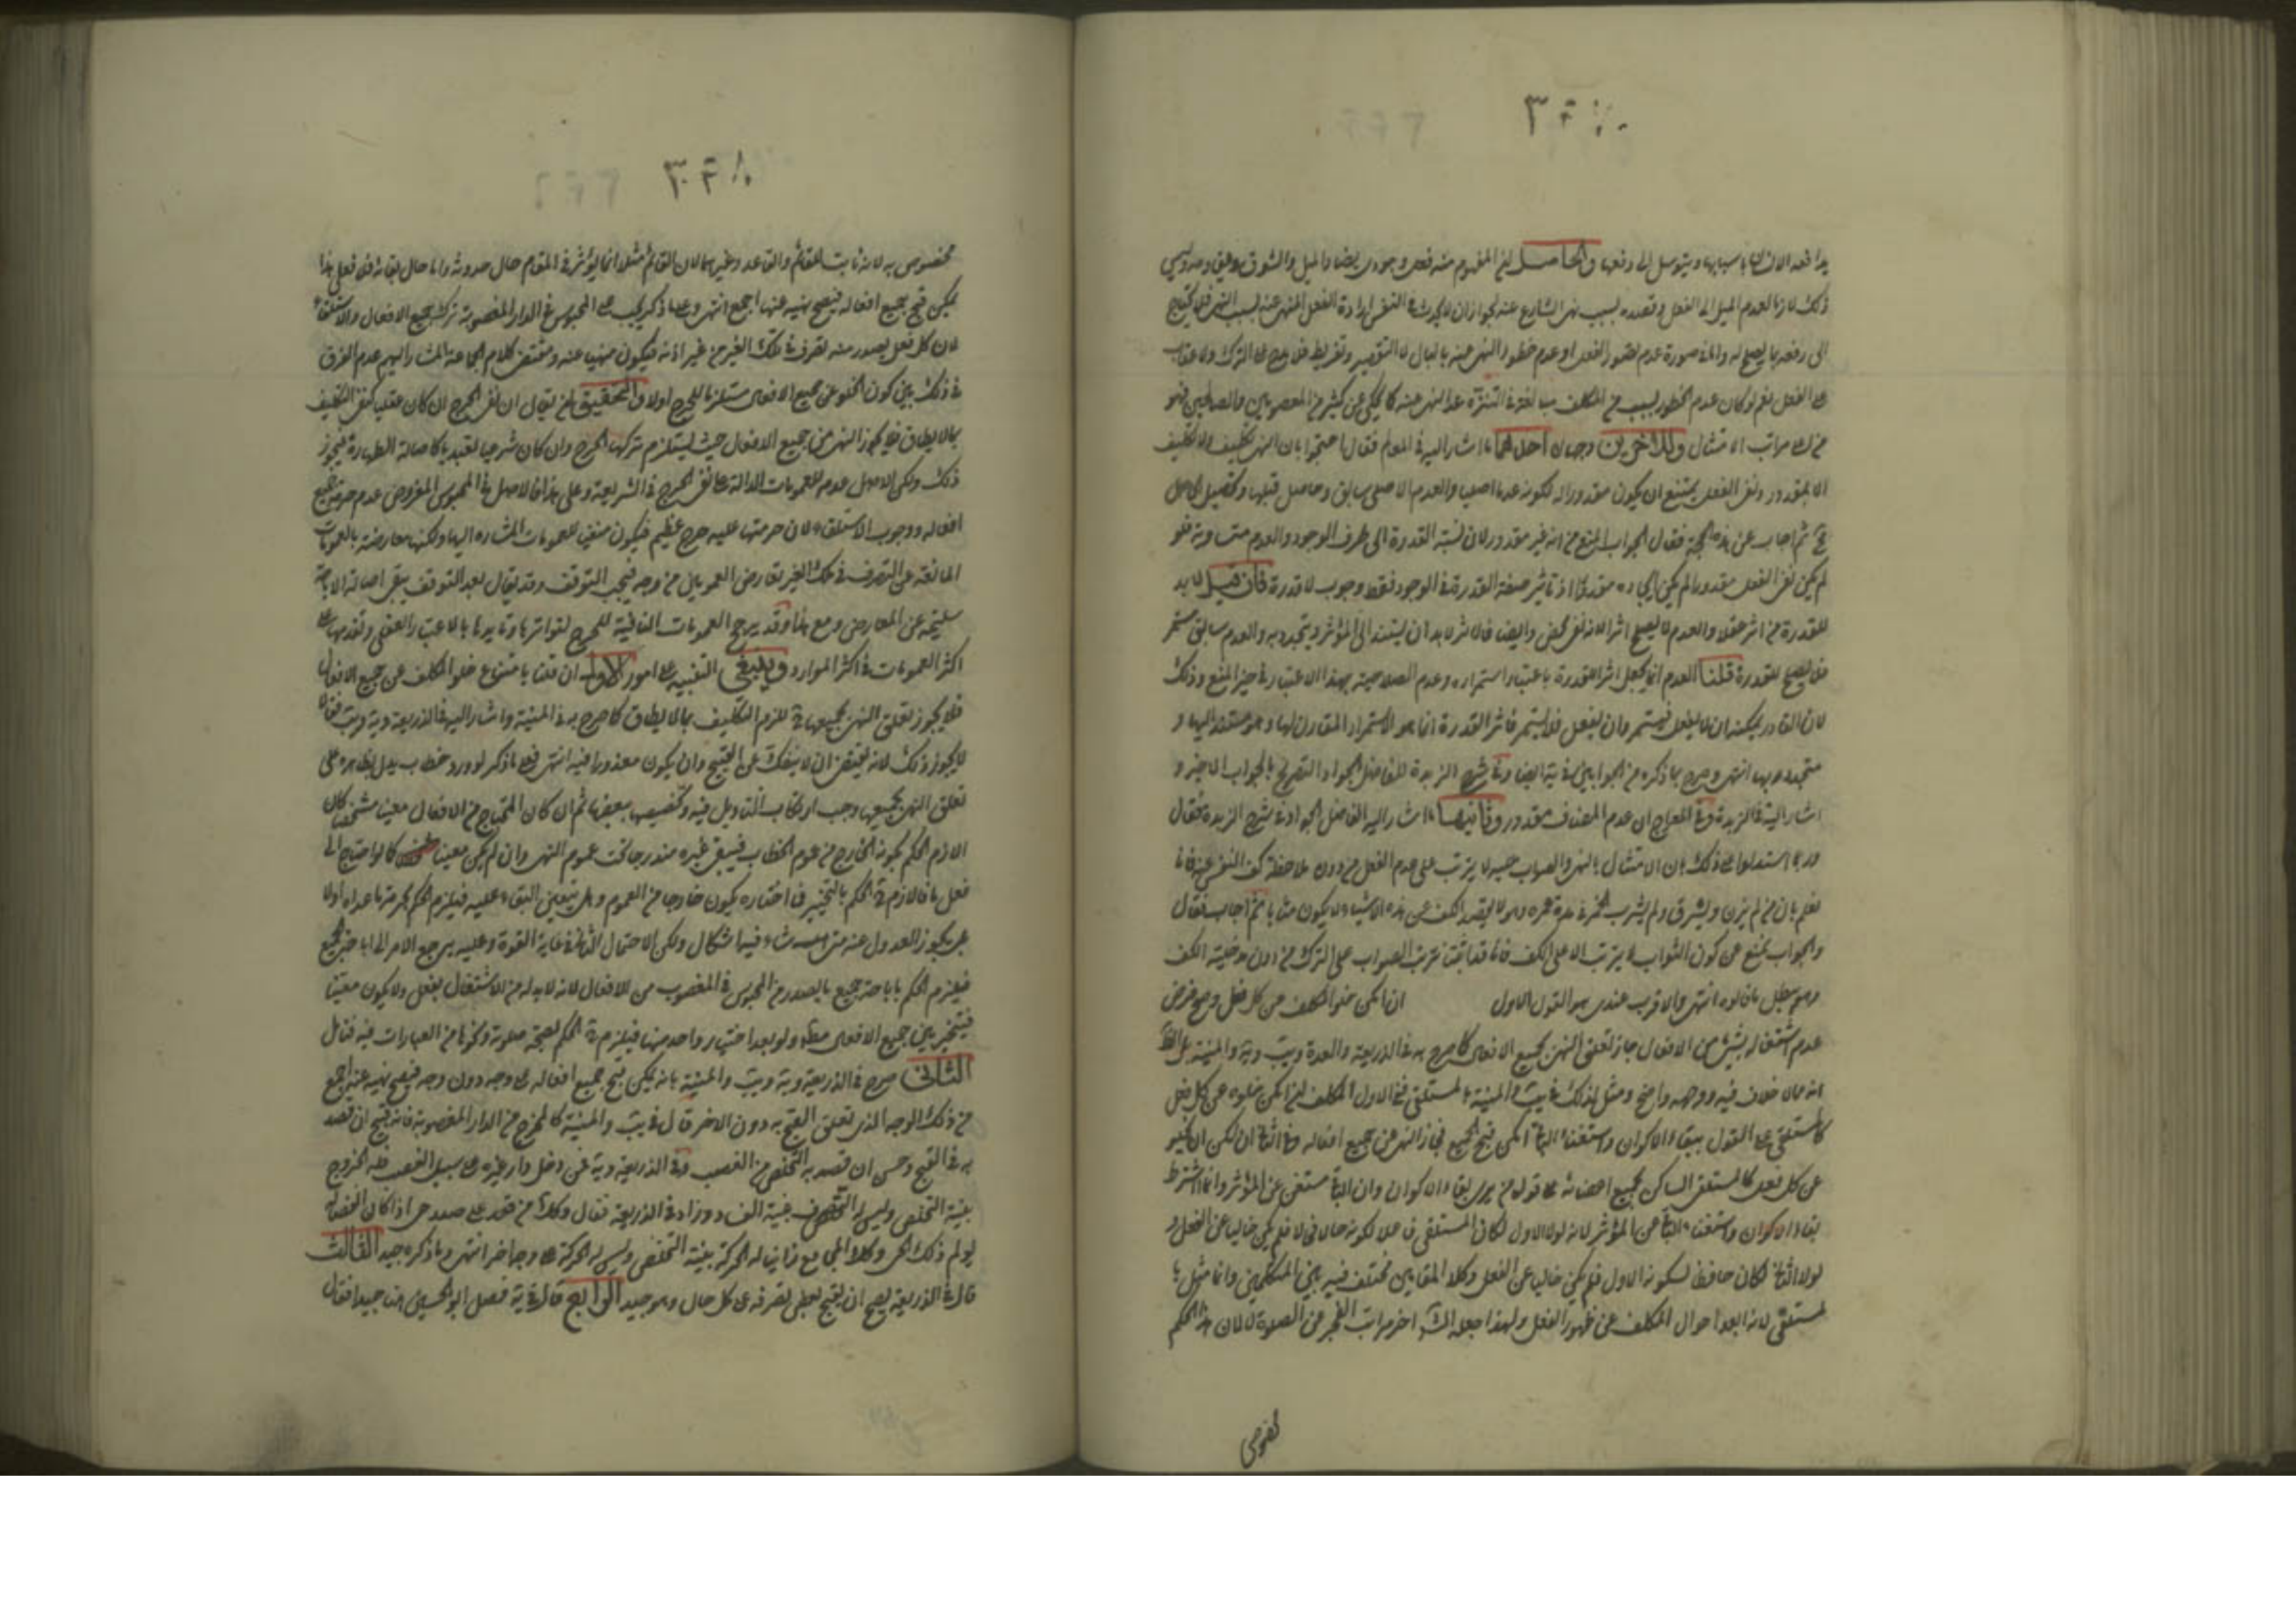 ذلك لازما لعدم الميل الى الفعل وقصده بسبب نهى الشارع عنه لجواز ان لا يحدث في النفس ارادة الفعل المنهى عنه بسبب النهى فلا يحتاج
الى رفعه بما يصلح له واما في صورة عدم تصور الفعل او عدم خطور النهى عنه بالبال
على الفعل نعم لو كان عدم الخطور بسبب من المكلف مبالغة في التنزه عن المنهى عنه كما يحكى عن كثير من المعصومين والصالحين فهو
مراتب الامتثال وللاخرين وجهان احدهما ما اشار اليه في المعالم فقال احتجوا بان النهى تكليف ولا تكليف
الا بمقدور ونفى الفعل يمتنع ان يكون مقدورا له لكونه عدما اصليا والعدم الاصلى سابق وحاصل قبلها وتحصيل الحاصل
مح ثم اجاب عن هذه الحجة فقال الجواب المنع من انه غير مقدور لان نسبة القدرة الى طرفى الوجود والعدم متساوية فلو
لم يكن نفى الفعل مقدورا لم يكن ايجاده مقدورا اذ تاثير صفة القدرة في الوجود فقط وجوب لا قدرة فان قيل لا بد
للقدرة من اثر عقلا والعدم لا يصلح اثرا لانه نفى محض وايضا فالاثر لا بد ان يستند الى المؤثر ويتجدد به والعدم سابق مستمر
فلا يصلح للقدرة قلنا العدم انما يجعل اثرا للقدرة باعتبار استمراره وعدم الصلاحية بهذا الاعتبار في حيز المنع وذلك
لان القادر يمكنه ان لا يفعل فيستمر وان يفعل فلا يستمر فاثر القدرة انما هو الاستمرار المقارن لها وهو مستند اليها و
متجدد بها انتهى وصرح بما ذكره من الجوابين في ية ايضا وفى شرح الزبدة للفاضل الجواد التصريح بالجواب الاخير و
اشار اليه في الزبدة وفى المعارج ان عدم المضاف مقدور وثانيهما ما اشار اليه الفاضل الجواد في شرح الزبدة فقال
وربما استدلوا على ذلك بان الامتثال بالنهى والثواب عليه لا يترتب على عدم الفعل من دون ملاحظة كف النفس عنه فانا
نعلم بان من لم يزن ولم يسرق ولم يشرب الخمر في مدة عمره وهو لا يقصد الكف عن هذه الاشياء لا يكون مثابا ثم اجاب فقال
والجواب بمنع عن كون الثواب لا يترتب الا على الكف فانا قد اثبتنا ترتب الثواب على الترك من دون مدخلية الكف
وهو يبطل ما قالوه انتهى والاقرب عندى هو القول الاول ان امكن خلو المكلف من كل فعل وصح فرض
عدم اشتغاله بشئ من الافعال جاز تعلق النهى بجميع الافعال كما صرح به في الذريعة والعدة ويب وية والمنية بل الظ
انه مما لا خلاف فيه ووجهه واضح ومثل لذلك في يب والمنية بالمستلقى ففى الاول المكلف ان امكن خلوه عن كل فعل
كالمستلقى على القول ببقاء الاكوان واستغناء الباقى امكن قبح الجميع فجاز النهى عن جميع افعاله وفى الثانى ان امكن ان يخلو
عن كل فعل كالمستلقى الساكن بجميع اعضائه على قول من يرى بقاء الاكوان وان الباقى مستغن عن المؤثر وانما اشترط
بقاء الاكوان واستغناء الباقى عن المؤثر لانه لولا الاول لكان المستلقى فاعلا لكونه حالا فحالا فلم يكن خاليا عن الفعل و
لولا الثانى لكان حافظا لسكونه الاول فلم يكن خاليا عن الفعل وكلا المقامين مختلف فيه بين المتكلمين وانما مثل با
لمستلقى لانه ابعد احوال المكلف عن ظهور الفعل ولهذا جعله اخر مراتب العجز عن الصلوة لا لان هذا الحكم
مخصوص به لانه ثابت للقائم والقاعد وغيرهما لان القائم مثلا انما يؤثر في القيام حال حدوثه واما حال بقائه فلا فعلى هذا
يمكن قبح جميع افعاله فيصح نهيه عنها اجمع انتهى وعلى ما ذكر يجب على المحبوس في الدار المغصوبة ترك جميع الافعال والاستلقاء
لان كل فعل يصدر منه تصرف في ملك الغير من غير اذنه فيكون منهيا عنه ومقتضى كلام الجماعة المشار اليهم عدم الفرق
في ذلك بين كون الخلو عن جميع الافعال مستلزما للحرج او لا والتحقيق ان يقال ان نفى الحرج ان كان عقليا كنفى التكليف
بما لا يطاق فلا يجوز النهى عن جميع الافعال حيث يستلزم تركها الحرج وان كان شرعيا تعبديا كاصالة الطهارة فيجوز
ذلك ولكن الاصل عدمه للعمومات الدالة على نفى الحرج في الشريعة وعلى هذا فالاصل في المحبوس المفروض عدم حرمة جميع
افعاله ووجوب الاستلقاء لان حرمتها عليه حرج عظيم فيكون منفيا للعمومات المشار اليها ولكنها معارضة بالعمومات
المانعة عن التصرف في ملك الغير تعارض العمومين من وجه فيجب التوقف وقد يقال بعد التوقف يبقى اصالة الاباحة
سليمة عن المعارض ومع هذا وقد يرجح العمومات النافية للحرج لتواترها وتاييدها بالاعتبار العقلى وتقدمها على
اكثر العمومات في اكثر الموارد وينبغى التنبيه على امور الاول ان قلنا بامتناع خلو المكلف عن جميع الافعال
فلا يجوز تعلق النهى بجميعها للزوم التكليف بما لا يطاق كما صرح به في المنية واشار اليه في الذريعة وية ويب فقالا
لا يجوز ذلك لانه يقتضى ان لا ينفك عن القبيح وان يكون معذورا فيه انتهى فعلى ما ذكر لو ورد خطاب يدل بظاهره على
تعلق النهى بجميعها وجب ارتكاب التاويل فيه وتخصيصه ببعضها ثم ان كان المحتاج من الافعال معينا مشخصا كان
اللازم الحكم بكونه الخارج من عموم الخطاب فيبقى غيره مندرجا تحت عموم النهى وان لم يكن معينا كما لو احتاج الى
فعل ما فاللازم ح الحكم بالتخيير فما اختاره يكون خارجا من العموم وهل يتعين البقاء عليه فيلزم الحكم بحرمة ما عداه او لا
بل يجوز العدول عنه متى شاء فيه اشكال ولكن الاحتمال الثانى في غاية القوة وعليه يرجع الامر الى اباحة الجميع
فيلزم الحكم باباحة جميع ما يصدر من المحبوس في المغصوب من الافعال لانه لا بد له من الاشتغال بفعل ولا يكون معينا
فيتخير بين جميع الافعال مط ولو بعد اختيار واحد منها فيلزم ح الحكم بصحة صلوته ونحوها من العبادات فيه فتامل
الثانى صرح في الذريعة وية ويب والمنية بانه يمكن قبح جميع افعاله على وجه دون وجه فيصح نهيه عنه اجمع
من ذلك الوجه الذى تعلق القبح به دون الاخر قال في يب والمنية كالخارج من الدار المغصوبة فانه قبيح ان قصد
به في القبح وحسن ان قصد به التخلص من الغصب وفى الذريعة وية فمن دخل دار غيره على سبيل الغصب فله الخروج
بنية التخلص وليس له التصرف بنية الفساد وزاد في الذريعة فقال وكذلك من قعد على صدر حى اذا كان انفصاله
يؤلم ذلك الحى وكذا المجامع زانيا له الحركة بنية التخلص وليس له الحركة على وجه اخر انتهى وما ذكره جيد الثالث
قال في الذريعة يصح ان يقبح بعض تصرفه على كل حال وهو جيد الرابع قال في ية فصل ابو الحسين هنا جيدا فقال